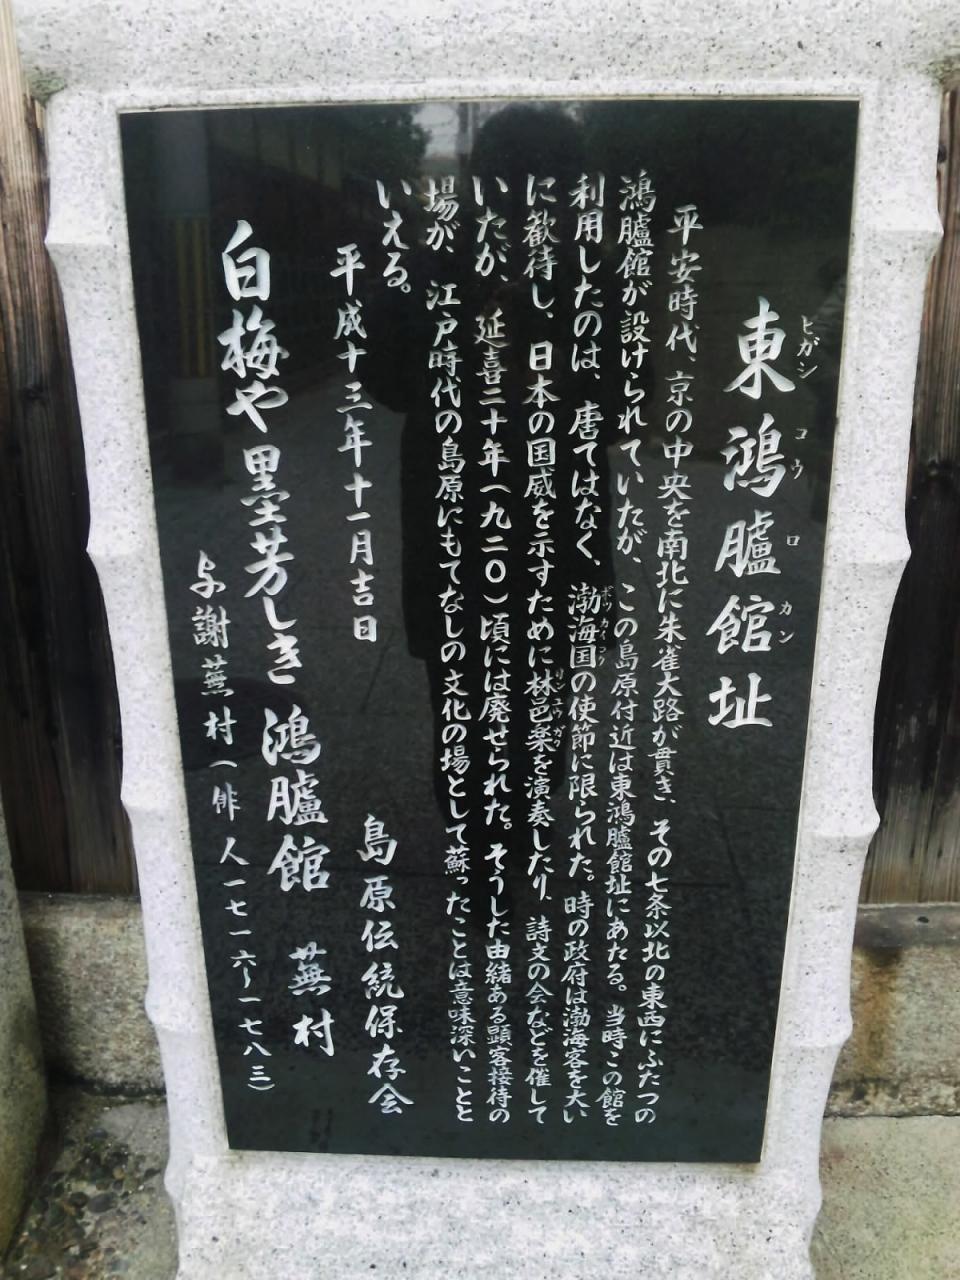 東鴻臚館址
ヒガシ コウ ロ カン
平安時代、京の中央を南北に朱雀大路が貫き、その七条以北の東西にふたつの
鴻臚館が設けられていたが、この島原付近は東鴻臚館址にあたる。当時この館を
利用したのは、唐ではなく、渤海国の使節に限られた。時の政府は渤海客を大い
ボツカイコク
に歓待し、日本の国威を示すために林邑楽を演奏したり、詩文の会などを催して
リンユウガク
いたが、延喜二十年(九二〇)頃には廃せられた。そうした由緒ある顕客接待の
場が、江戸時代の島原にもてなしの文化の場として蘇ったことは意味深いことと
いえる。
平成十三年十一月吉日
島原伝統保存会
白梅や墨芳しき鴻臚館 蕪村
与謝蕪村(俳人一七一六〜一七八三)